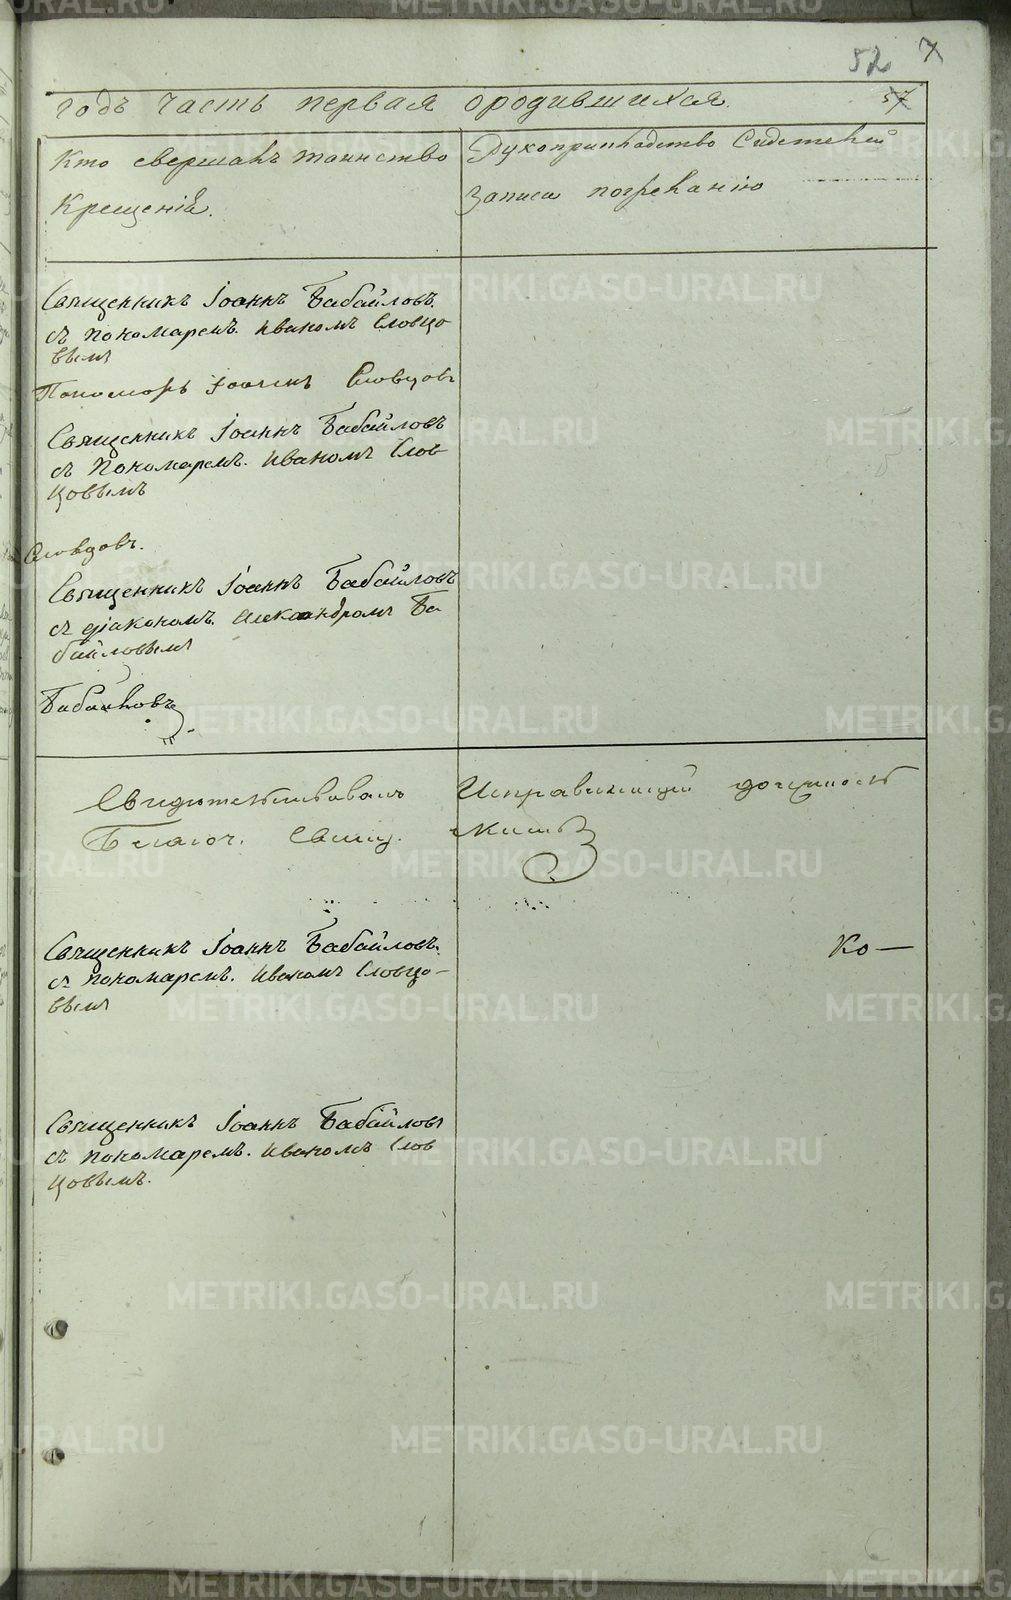 52 7
годъ часть первая ородившихся. 57
Кто свершалъ таинство
Крещенія.
Рукоприкладство Свдетелей
Записи пожеланію
Священникъ Іоаннъ Бабайловъ.
съ пономаремъ. Иваномъ Словцо
вымъ
Пономарь Іоаннъ Словцовъ
Священникъ Іоаннъ Бабайловъ
съ Пономаремъ. Иваномъ Слов
цовымъ
Словцовъ.
Священникъ Іоаннъ Бабайловъ
съ діакономъ. Александромъ Ба
байловымъ
Бабайловъ
Свидетельствовалъ Исправляющій должность
Благоч. Свящ.
Священникъ Іоаннъ Бабайловъ. Ко—
съ пономаремъ. Иваномъ Словцо-
вымъ
Священникъ Іоаннъ Бабайловъ
съ пономаремъ. Иваномъ Слов
цовымъ.
METRIKI.GASO-URAL.RU